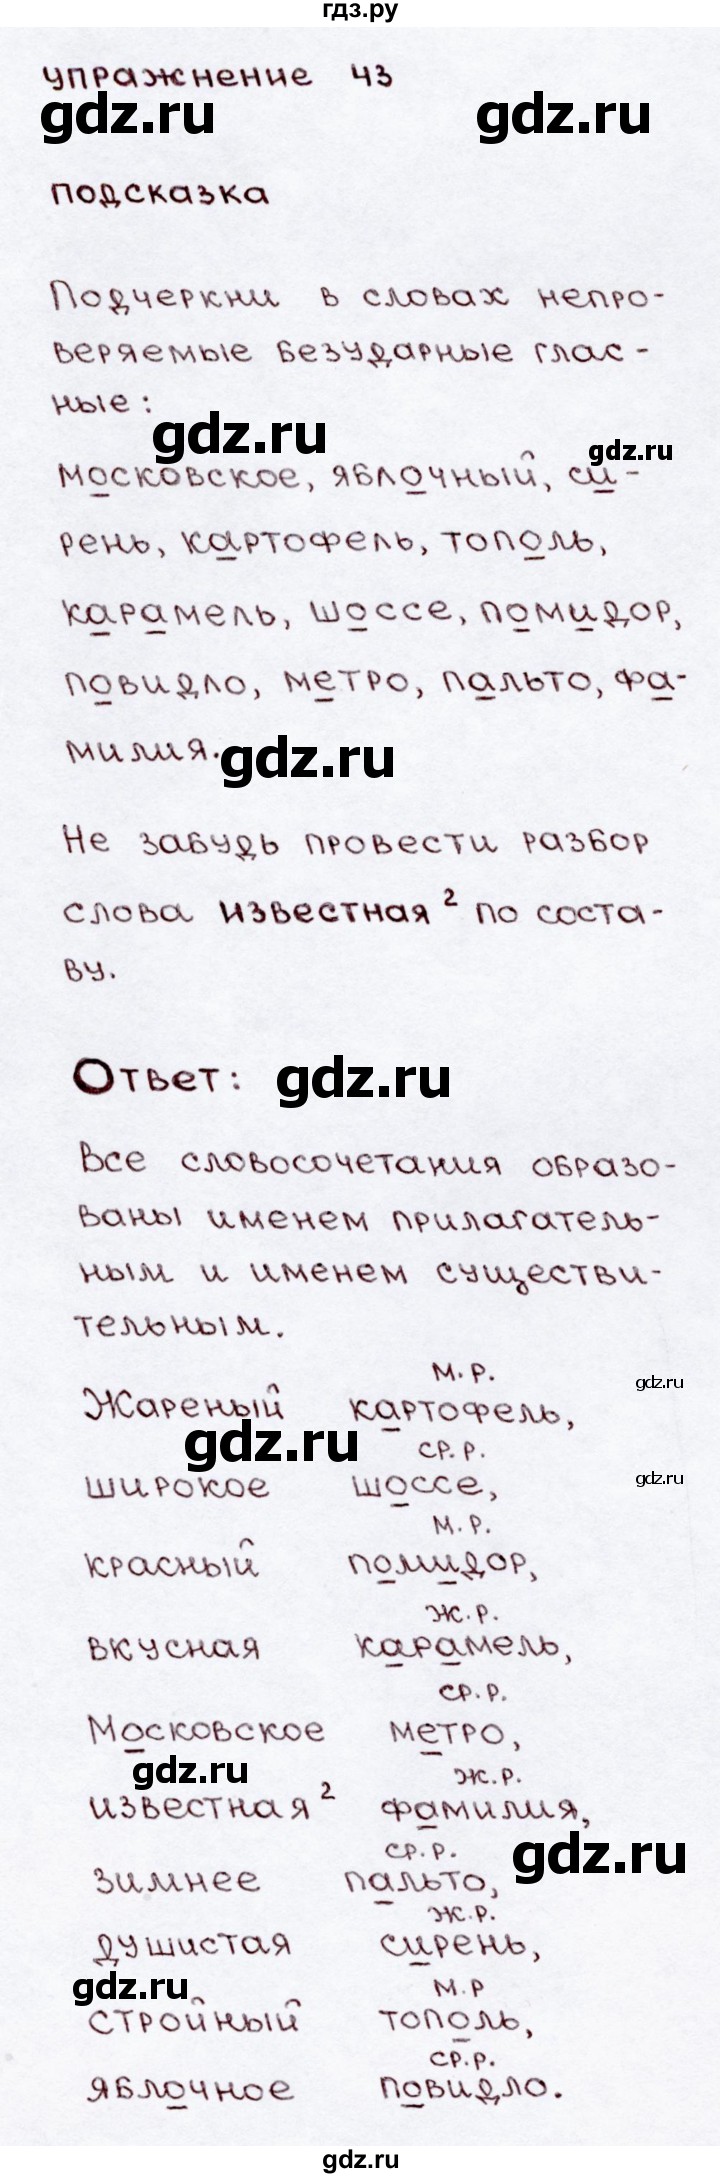 гдз.ру
упражнение 43
gdz.ru gdz.ru
подсказка
Подчеркни в словах непро-
веряемые безударные глас-
ные:
gdz.ru
gdz.ru
московское, яблочный, си-
рень, картофель, тополь,
карамель, шоссе, помидор,
повидло, метро, пальто, фа-
милия.
gdz.ru
Не забудь провести разбор
слова известная ² по соста-
ву.
Ответ: gdz.ru
Все словосочетания образо-
ваны именем прилагатель-
ным и именем существи-
тельным.
м.р.
gdz.ru
Жареный картофель,
gdz.ru
ср.р.
gdz.ru
широкое шоссе,
м.р.
красный помидор,
ж.р.
вкусная карамель,
ср.р.
Московское метро,
gdz.ru
ж.р.
известная ² фамилия,
ср.р.
gdz.ru
зимнее пальто,
ж.р.
душистая сирень,
gdz.ru
м.р
стройный тополь,
ср.р.
яблочное повидло.
gdz.ru